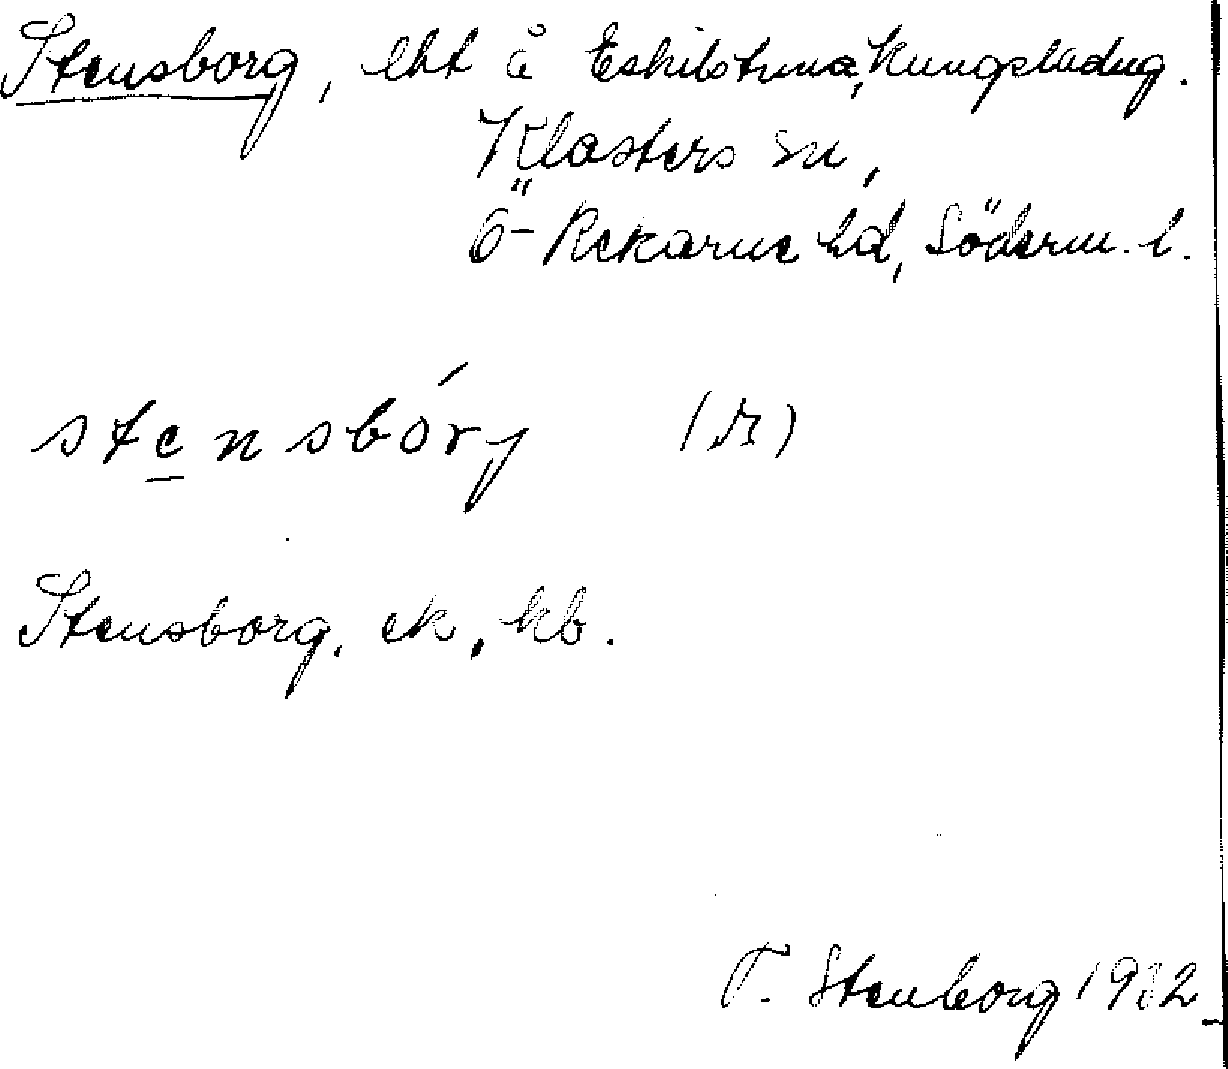 Stensborg, lht å Eskilstuna Kungsladug.
Klosters sn,
Ö-Rekarne hd, Söderm. l.
stensbórj (st)
Stensborg, ek, kb.
T. Stenborg 1932